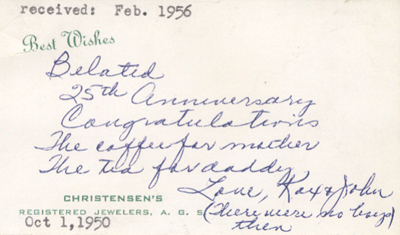 received: Feb. 1956
Best Wishes
Belated
25th Anniversary
Congratulations
The coffee for mother
The tea for daddy,
Love, Kax & John
CHRISTENSEN'S
REGISTERED JEWELERS, A. G. S
(There were no boys
then
Oct 1,1950